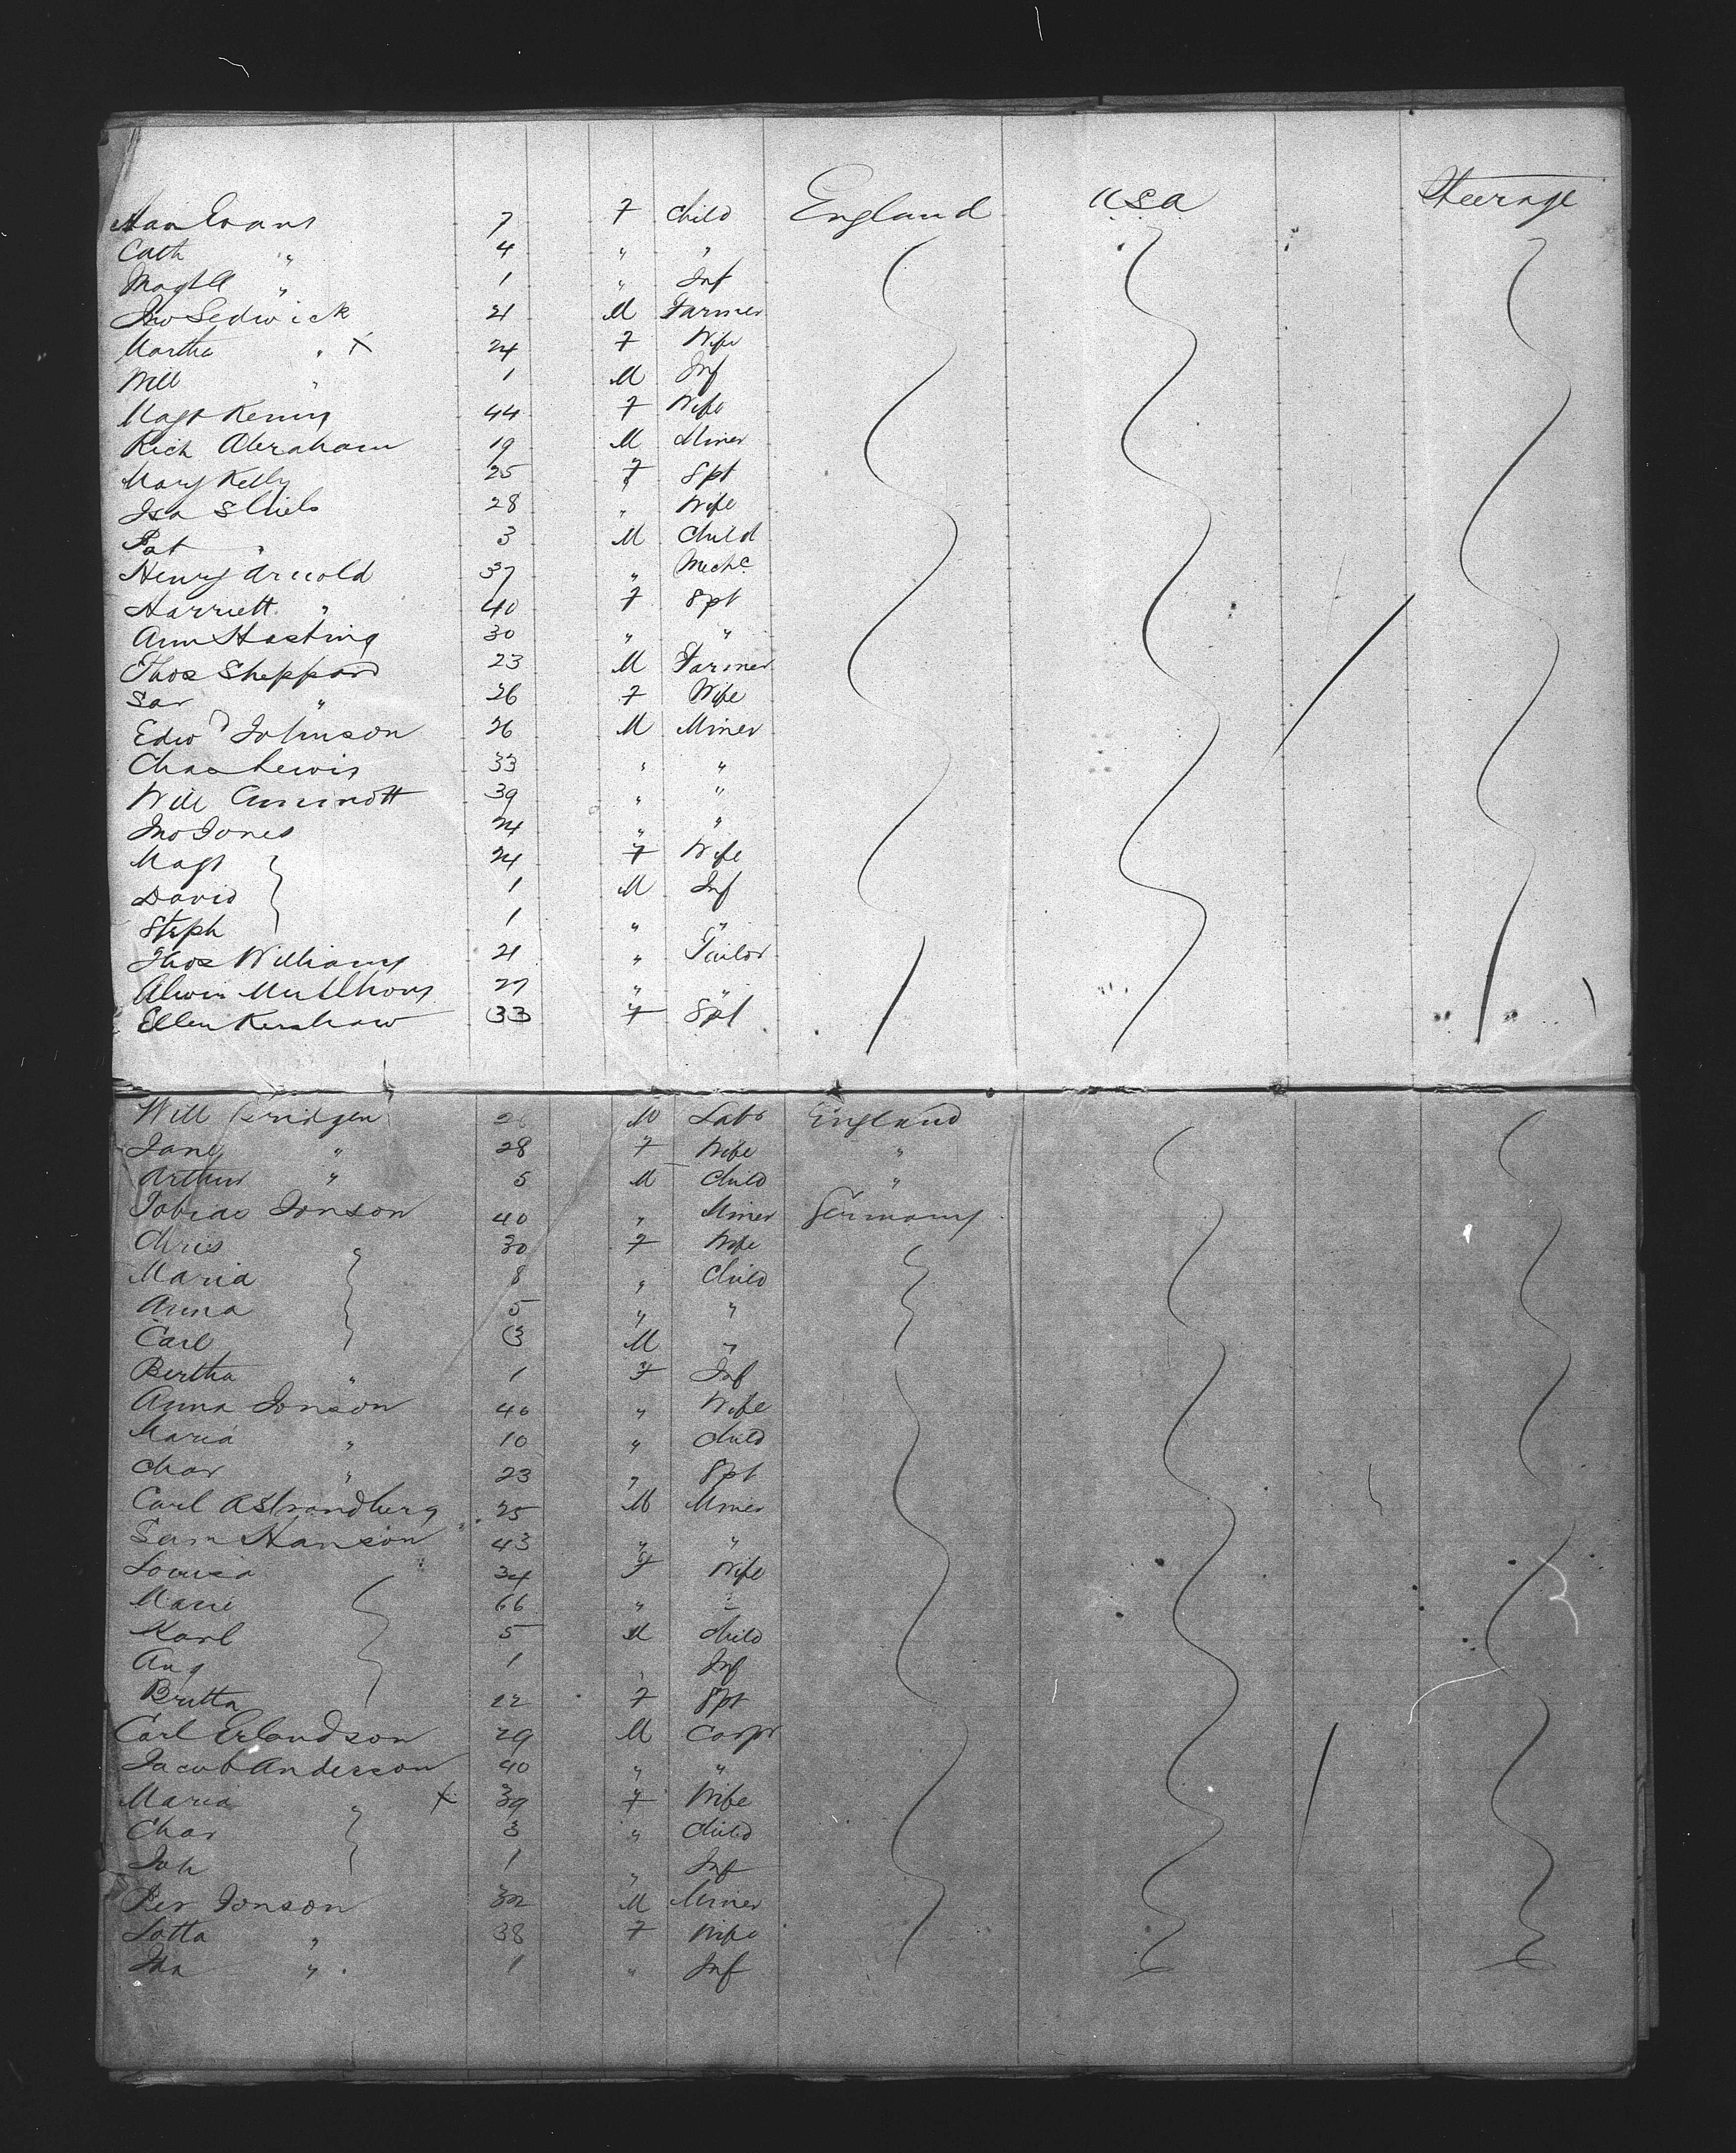 Han Evans 7 F Child England USA Steerage
Cath " 4 " "
Magt A " 1 " Inf
Jno Sedwick 21 M Farmer
Martha " X 24 F Wife
Will " 1 M Inf
Magt Kenny 44 F Wife
Rich Abraham 19 M Miner
Mary Kelly 25 F Spt
Isa Shiels 28 " Wife
Pat " 3 M Child
Henry Arnold 37 " Mechc
Harriett " 40 F Spt
Ann Hasting 30 " "
Thos Sheppard 23 M Farmer
Sar " 26 F Wife
Edwd Johnson 26 M Miner
Chas Lewis 33 " "
Will 39 " "
Jno Jones 24 " "
Magt 24 F Wife
David 1 M Inf
Steph 1 " "
Thos Williams 21 " Tailor
27 " "
Ellen Kershaw 33 F Spt
Will Bridgen 26 M Labr England
Jane " 28 F Wife "
Arthur " 5 M Child "
Tobias Jonson 40 " Miner Germany
Chris " 30 F Wife
Maria 8 " Child
Anna 5 " "
Carl 3 M "
Bertha " 1 F Inf
Anna Jonson 40 " Wife
Maria " 10 " Child
Char " 23 " Spt
Carl A Strandberg 25 M Miner
Sam Hanson 43 " "
Louisa 34 F Wife
Marie 66 " "
Karl 5 M Child
Aug 1 " Inf
Britta 22 F Spt
Carl Erlandson 29 M Carpr
Jacob Anderson 40 " "
Maria " X 39 F Wife
Char 3 " Child
Joh 1 " Inf
Per Jonson 32 M Miner
Lotta " 38 F Wife
Ida " 1 " Inf